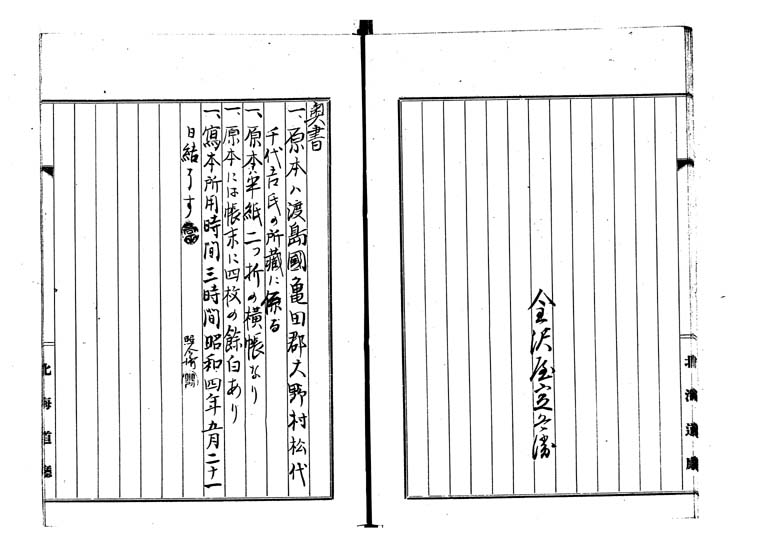 金沢屋定兵衛
北海道廳
奥書
一、原本ハ渡島國亀田郡大野村松代
千代吉氏の所藏に係る
一、原本半紙二つ折の横帳なり
一、原本には帳末に四枚の餘白あり
一、寫本所用時間三時間昭和四年五月二十一
日結了す
北海道廳